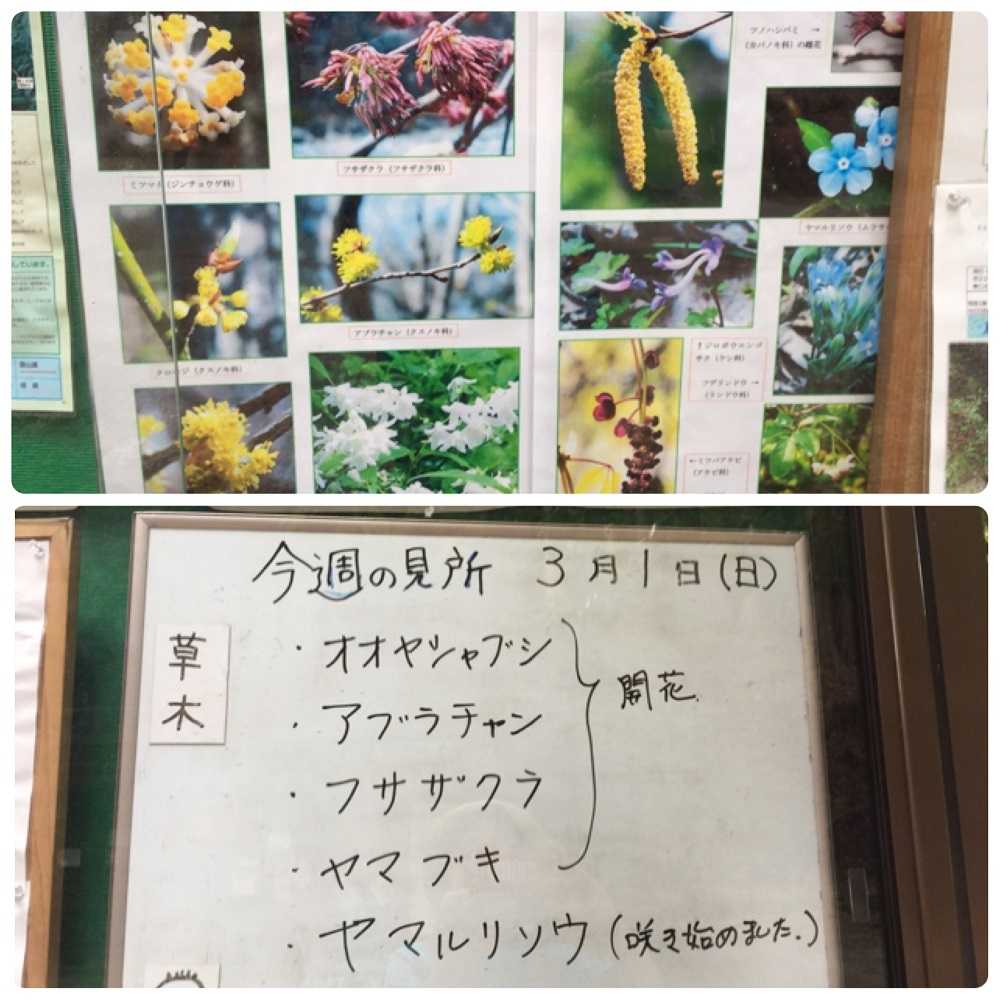 ツノハシバミ →
(カバノキ科) の雄花
フサザクラ (フサザクラ科)
ミツマタ (ジンチョウゲ科)
ヤマルリソウ (ムラサキ
アブラチャン (クスノキ科)
クロモジ (クスノキ科)
↑ジロボウエンゴ
サク (ケシ科)
フデリンドウ →
(リンドウ科)
←ミツバアケビ
(アケビ科)
今週の見所 3月1日(日)
草木
・オオヤシャブシ
開花
・アブラチャン
・フサザクラ
・ヤマブキ
・ヤマルリソウ (咲き始めました。)